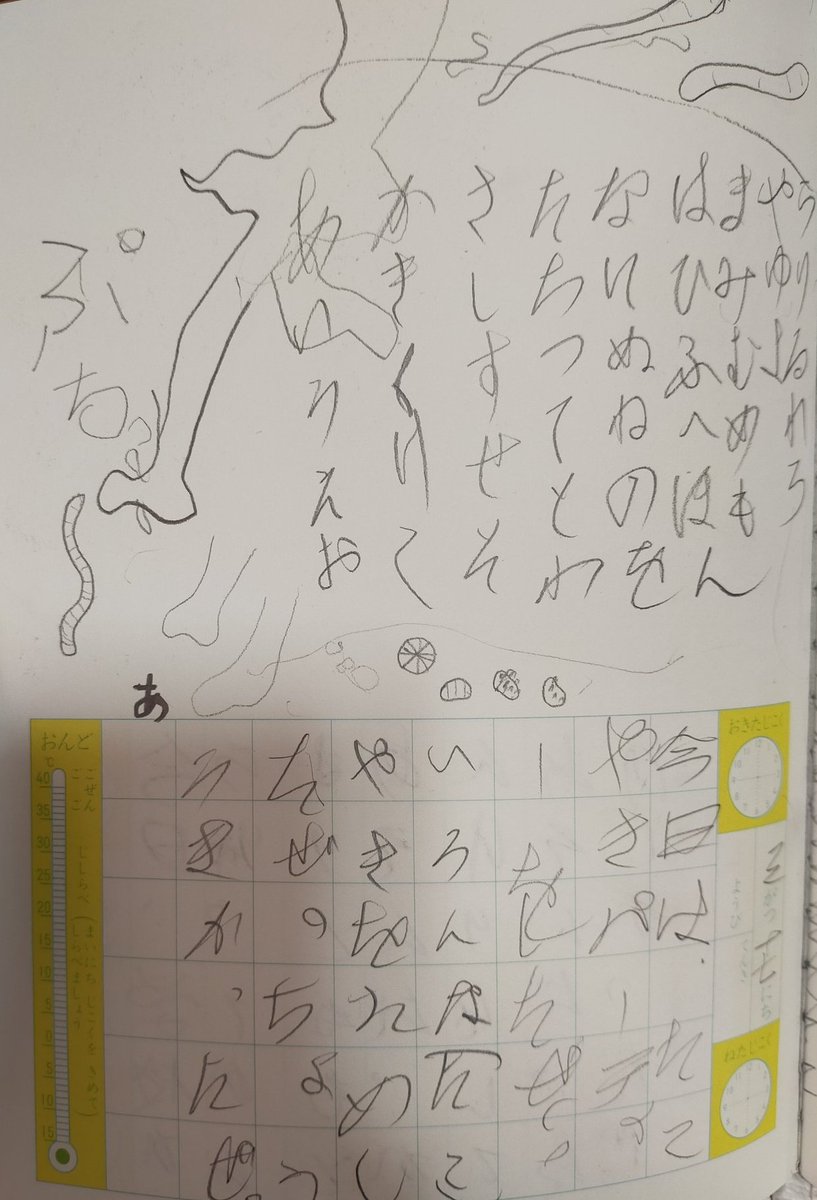 らりるれろ
やゆよ
まみむめもん
はひふへほ
なにぬねのを
たちつてとわ
さしすせそ
かきくけこ
あいうえお
ぷち
あ
おきたじこく
ねたじこく
がつ
にち
今日は、たこ
やきパーティ
ーをしたぜ。
いろんなたこ
やきを
たぜ。ちょう
おんど
℃
40
35
30
25
20
15
10
5
0
5
10
15
ごぜん
ごご
じしらべ
(まいにち じこくを きめて
しらべましょう)